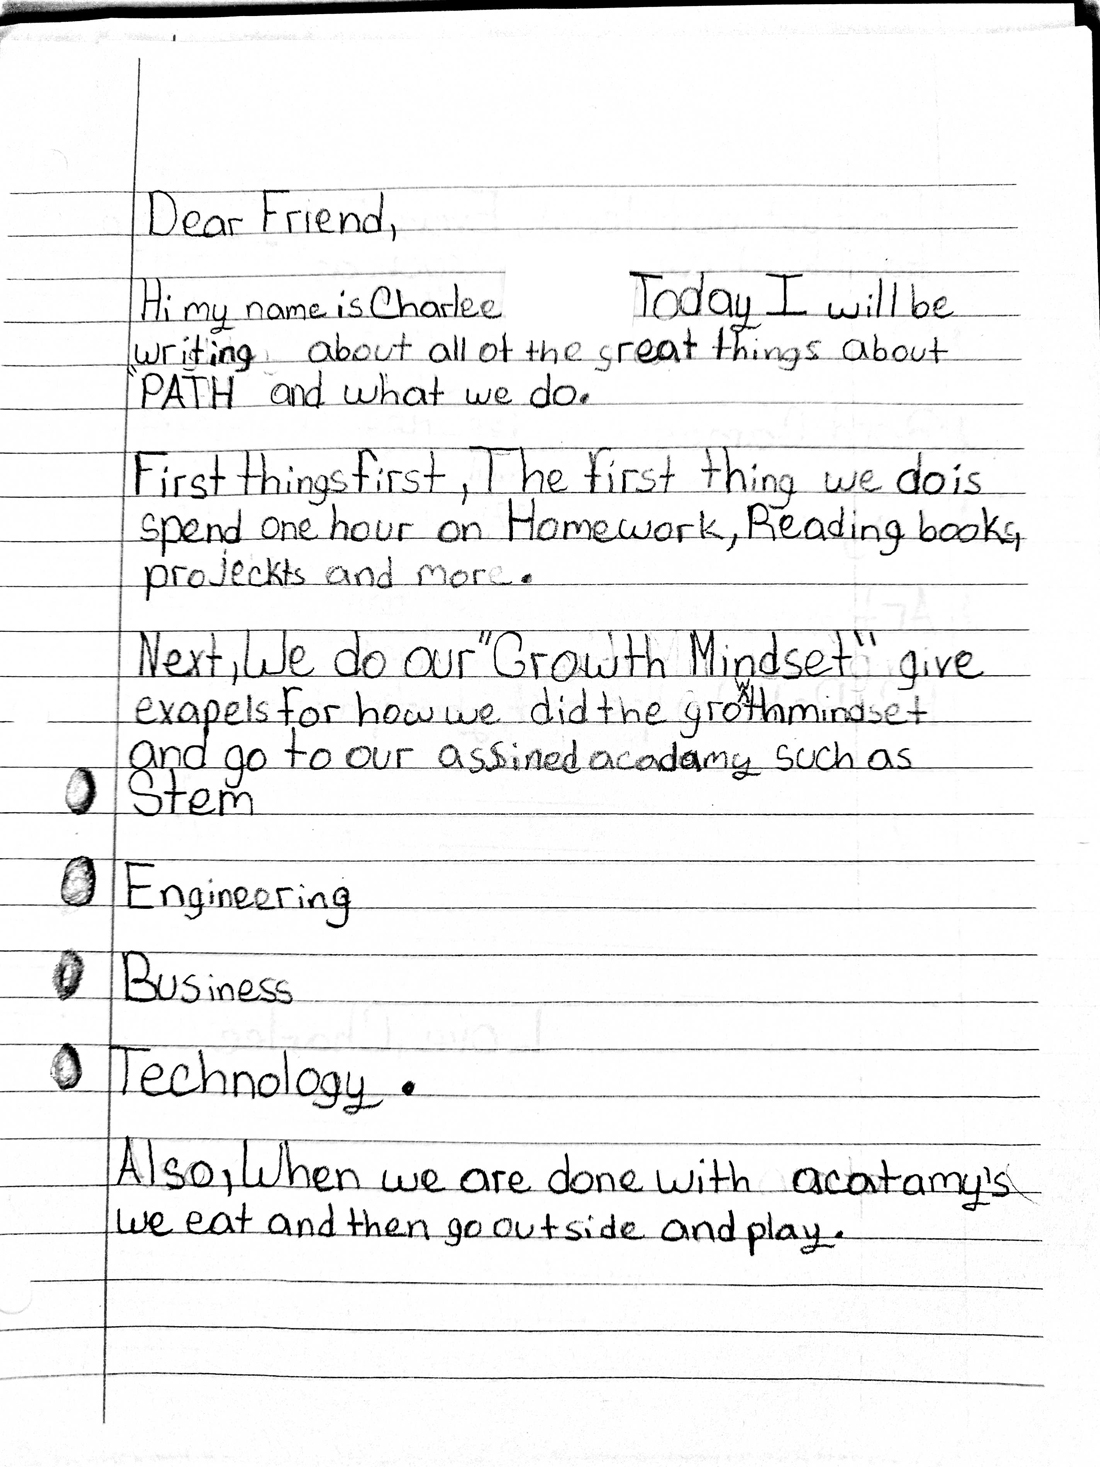 Dear Friend,
Hi my name is Charlee Today I will be
writing about all of the great things about
"PATH" and what we do.
First things first, The first thing we do is
spend one hour on Homework, Reading books,
projeckts and more.
Next, We do our "Growth Mindset" give
exapels for how we did the growthmindset
and go to our assined acadamy such as
Stem
Engineering
Business
Technology.
Also, When we are done with acatamy's
we eat and then go outside and play.